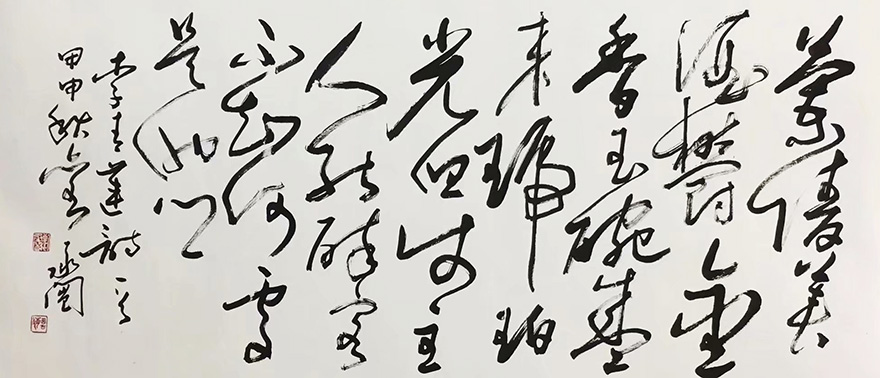 蘭陵美
酒鬱金
香玉碗盛
来琥珀
光但使主
人能醉客
不知何處
是他鄉
李青蓮詩一首
甲申秋